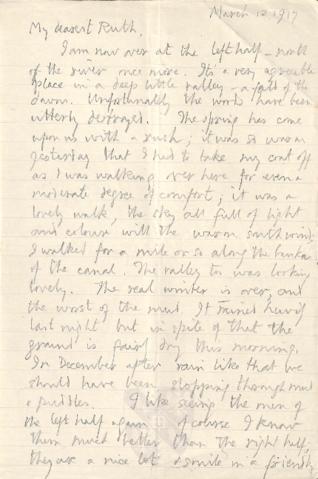 March 12 1917
My dearest Ruth,
I am now over at the left half - north
of the river once more. It's a very agreeable
place in a deep little valley - a fold of the
down. Unfortunately the woods have been
utterly destroyed. The spring has come
upon us with a rush; it was so warm
yesterday that I had to take my coat off
as I was walking over here for even a
moderate degree of comfort; it was a
lovely walk, the sky all full of light
and colour with the warm south wind.
I walked for a mile or so along the banks
of the canal. The valley too was looking
lovely. The real winter is over, and
the worst of the mud. It rained heavily
last night but in spite of that the
ground is fairly dry this morning.
In December after rain like that we
should have been slopping through mud
& puddles. I like seeing the men of
the left half again - of course I know
them much better than the right half;
they are a nice lot & smile in a friendly